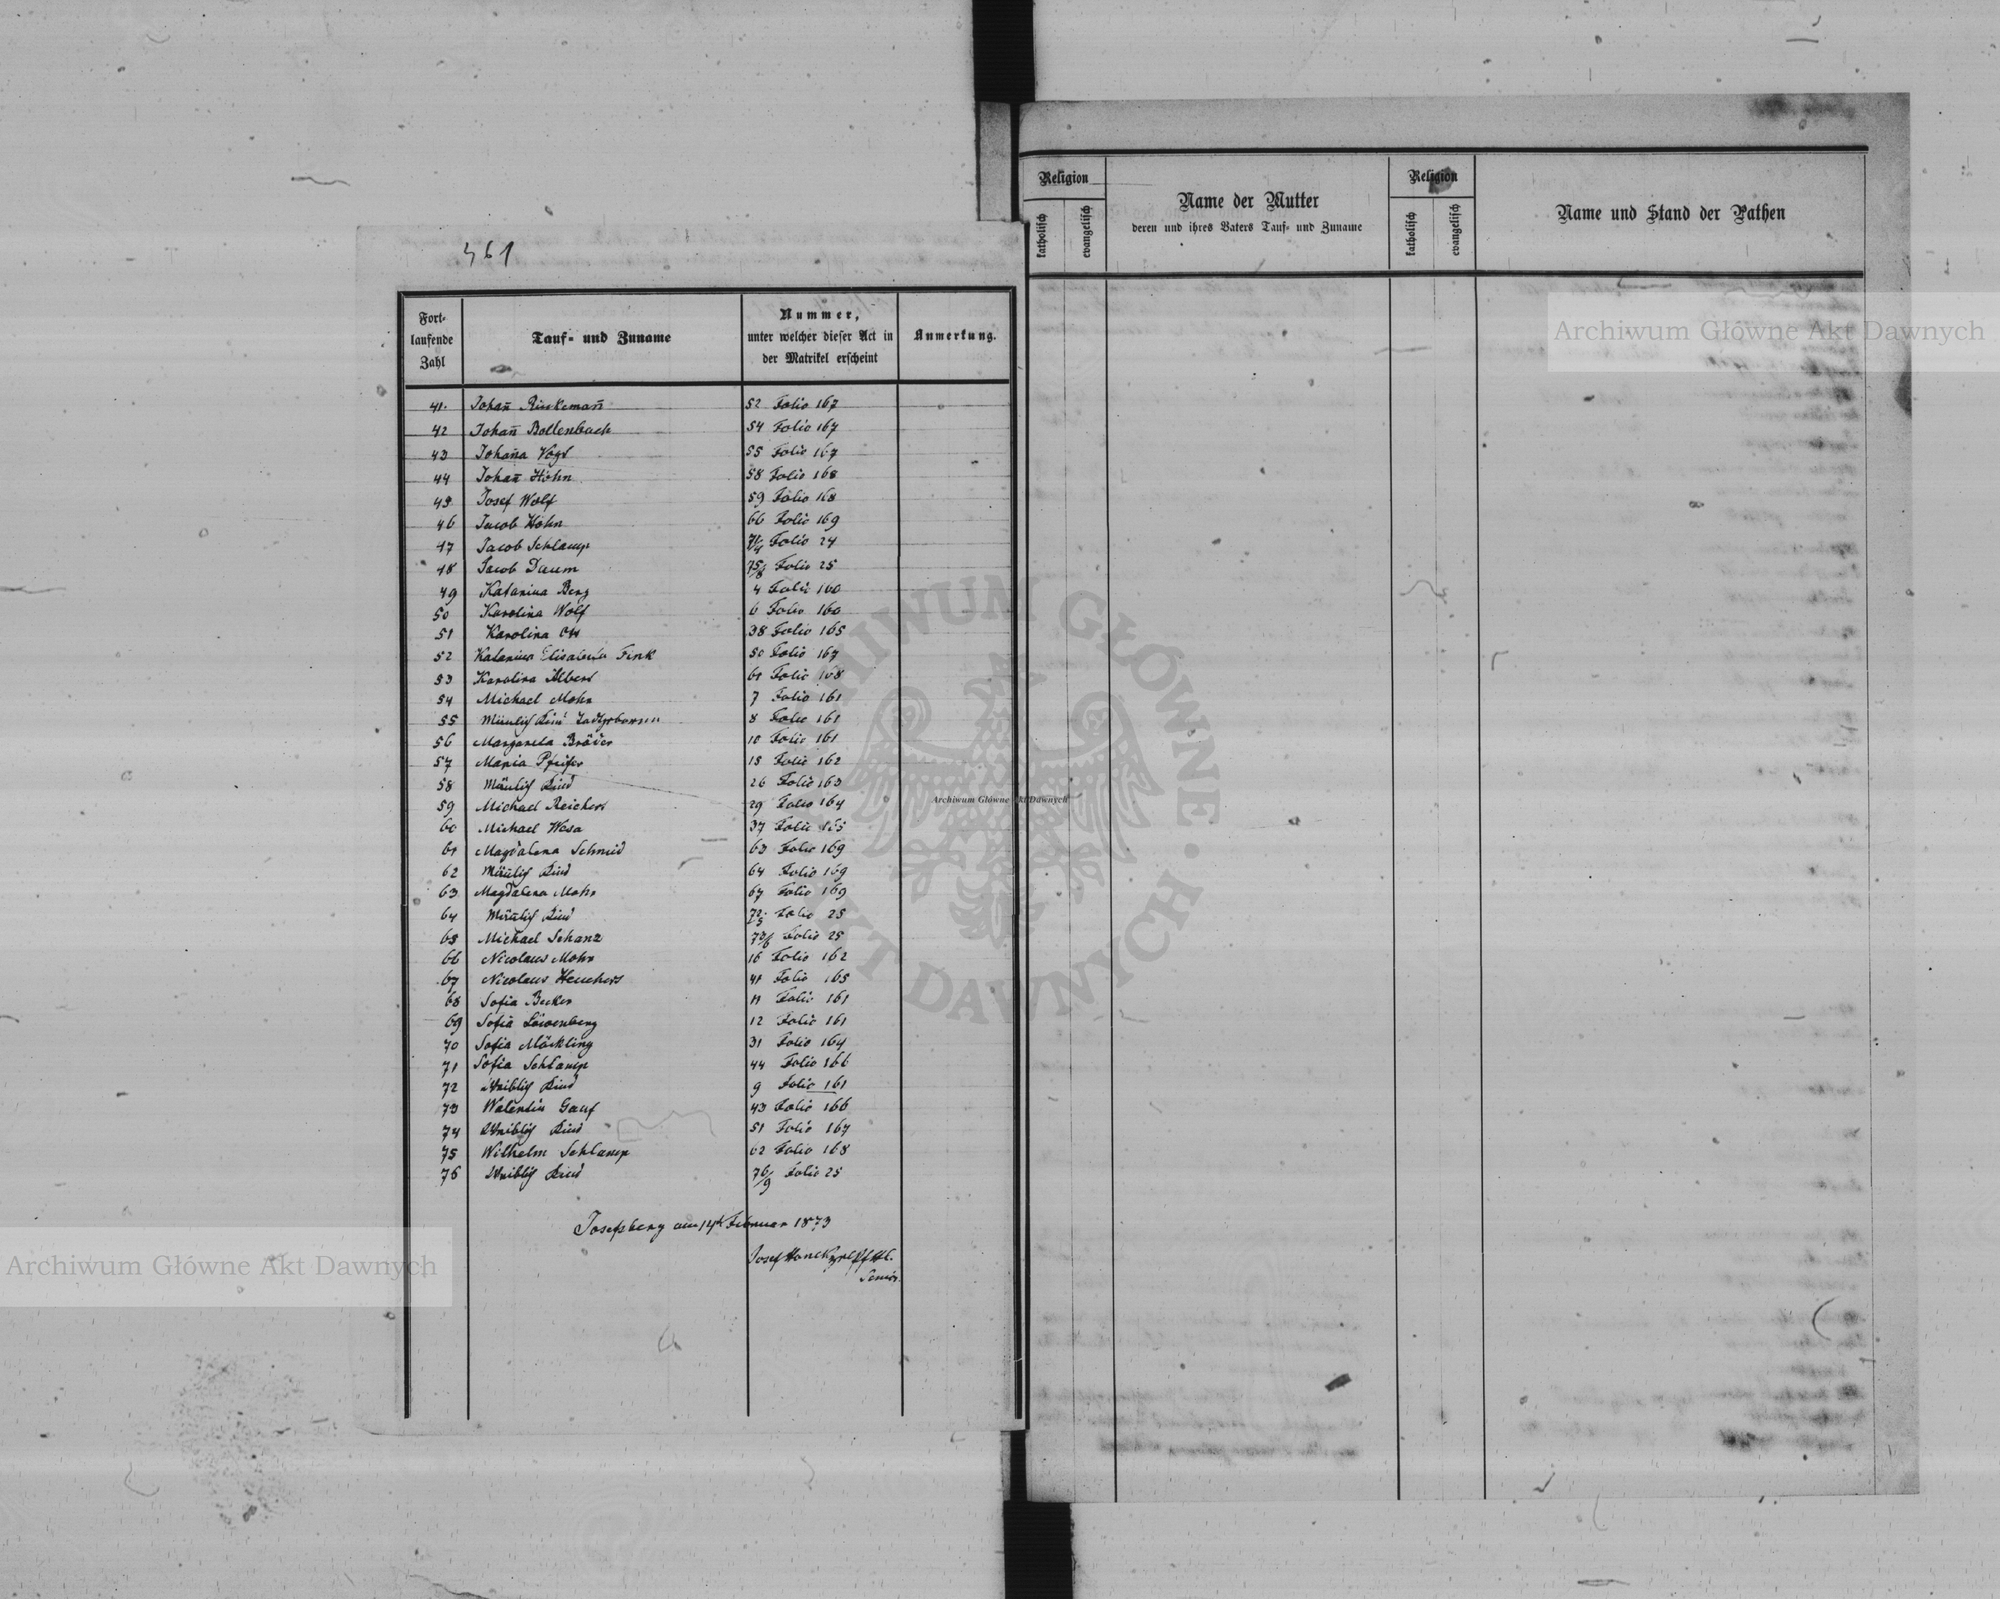 461
Fort-
laufende
Zahl
Tauf- und Zuname
Nummer,
unter welcher dieser Act in
der Matrikel erscheint
Anmerkung.
41. Johan̄ Rinkeman̄ 52 Folio 167
42 Johan̄ Bollenbach 54 Folio 167
43 Johan̄a Vogt 55 Folio 167
44 Johan̄ Höhn 58 Folio 168
45 Josef Wolf 59 Folio 168
46 Jacob Höhn 66 Folio 169
47 Jacob Schlamp 71/4 Folio 24
48 Jacob Daum 75/8 Folio 25
49 Katarina Berg 4 Folio 160
50 Karolina Wolf 6 Folio 160
51 Karolina Ott 38 Folio 165
52 Katarina Elisabetha Fink 50 Folio 167
53 Karolina Albert 61 Folio 168
54 Michael Mohr 7 Folio 161
55 Mänlich Kind 8 Folio 161
56 Margareta Bräder 10 Folio 161
57 Maria Pfeifer 15 Folio 162
58 Mänlich Kind 26 Folio 163
59 Michael Reichert 29 Folio 164
60 Michael Wasa 37 Folio 165
61 Magdalena Schmid 63 Folio 169
62 Mänlich Kind 64 Folio 169
63 Magdalena Mohr 67 Folio 169
64 Mänlich Kind 72/5 Folio 25
65 Michael Schanz 73/6 Folio 25
66 Nicolaus Mohr 16 Folio 162
67 Nicolaus Heuchert 41 Folio 165
68 Sofia Becker 11 Folio 161
69 Sofia Löwenberg 12 Folio 161
70 Sofia Möckling 31 Folio 164
71 Sofia Schlamp 44 Folio 166
72 Weiblich Kind 9 Folio 161
73 Walentin Gauf 43 Folio 166
74 Weiblich Kind 51 Folio 167
75 Wilhelm Schlamp 62 Folio 168
76 Weiblich Kind 76/9 Folio 25
Josefsberg am 14t Februar 1873
Josef
Senior.
Religion
katholisch
evangelisch
Name der Mutter
deren und ihres Vaters Tauf- und Zuname
Religion
katholisch
evangelisch
Name und Stand der Pathen
Archiwum Główne Akt Dawnych
Archiwum Główne Akt Dawnych
Archiwum Główne Akt Dawnych
ARCHIWUM GŁÓWNE AKT DAWNYCH